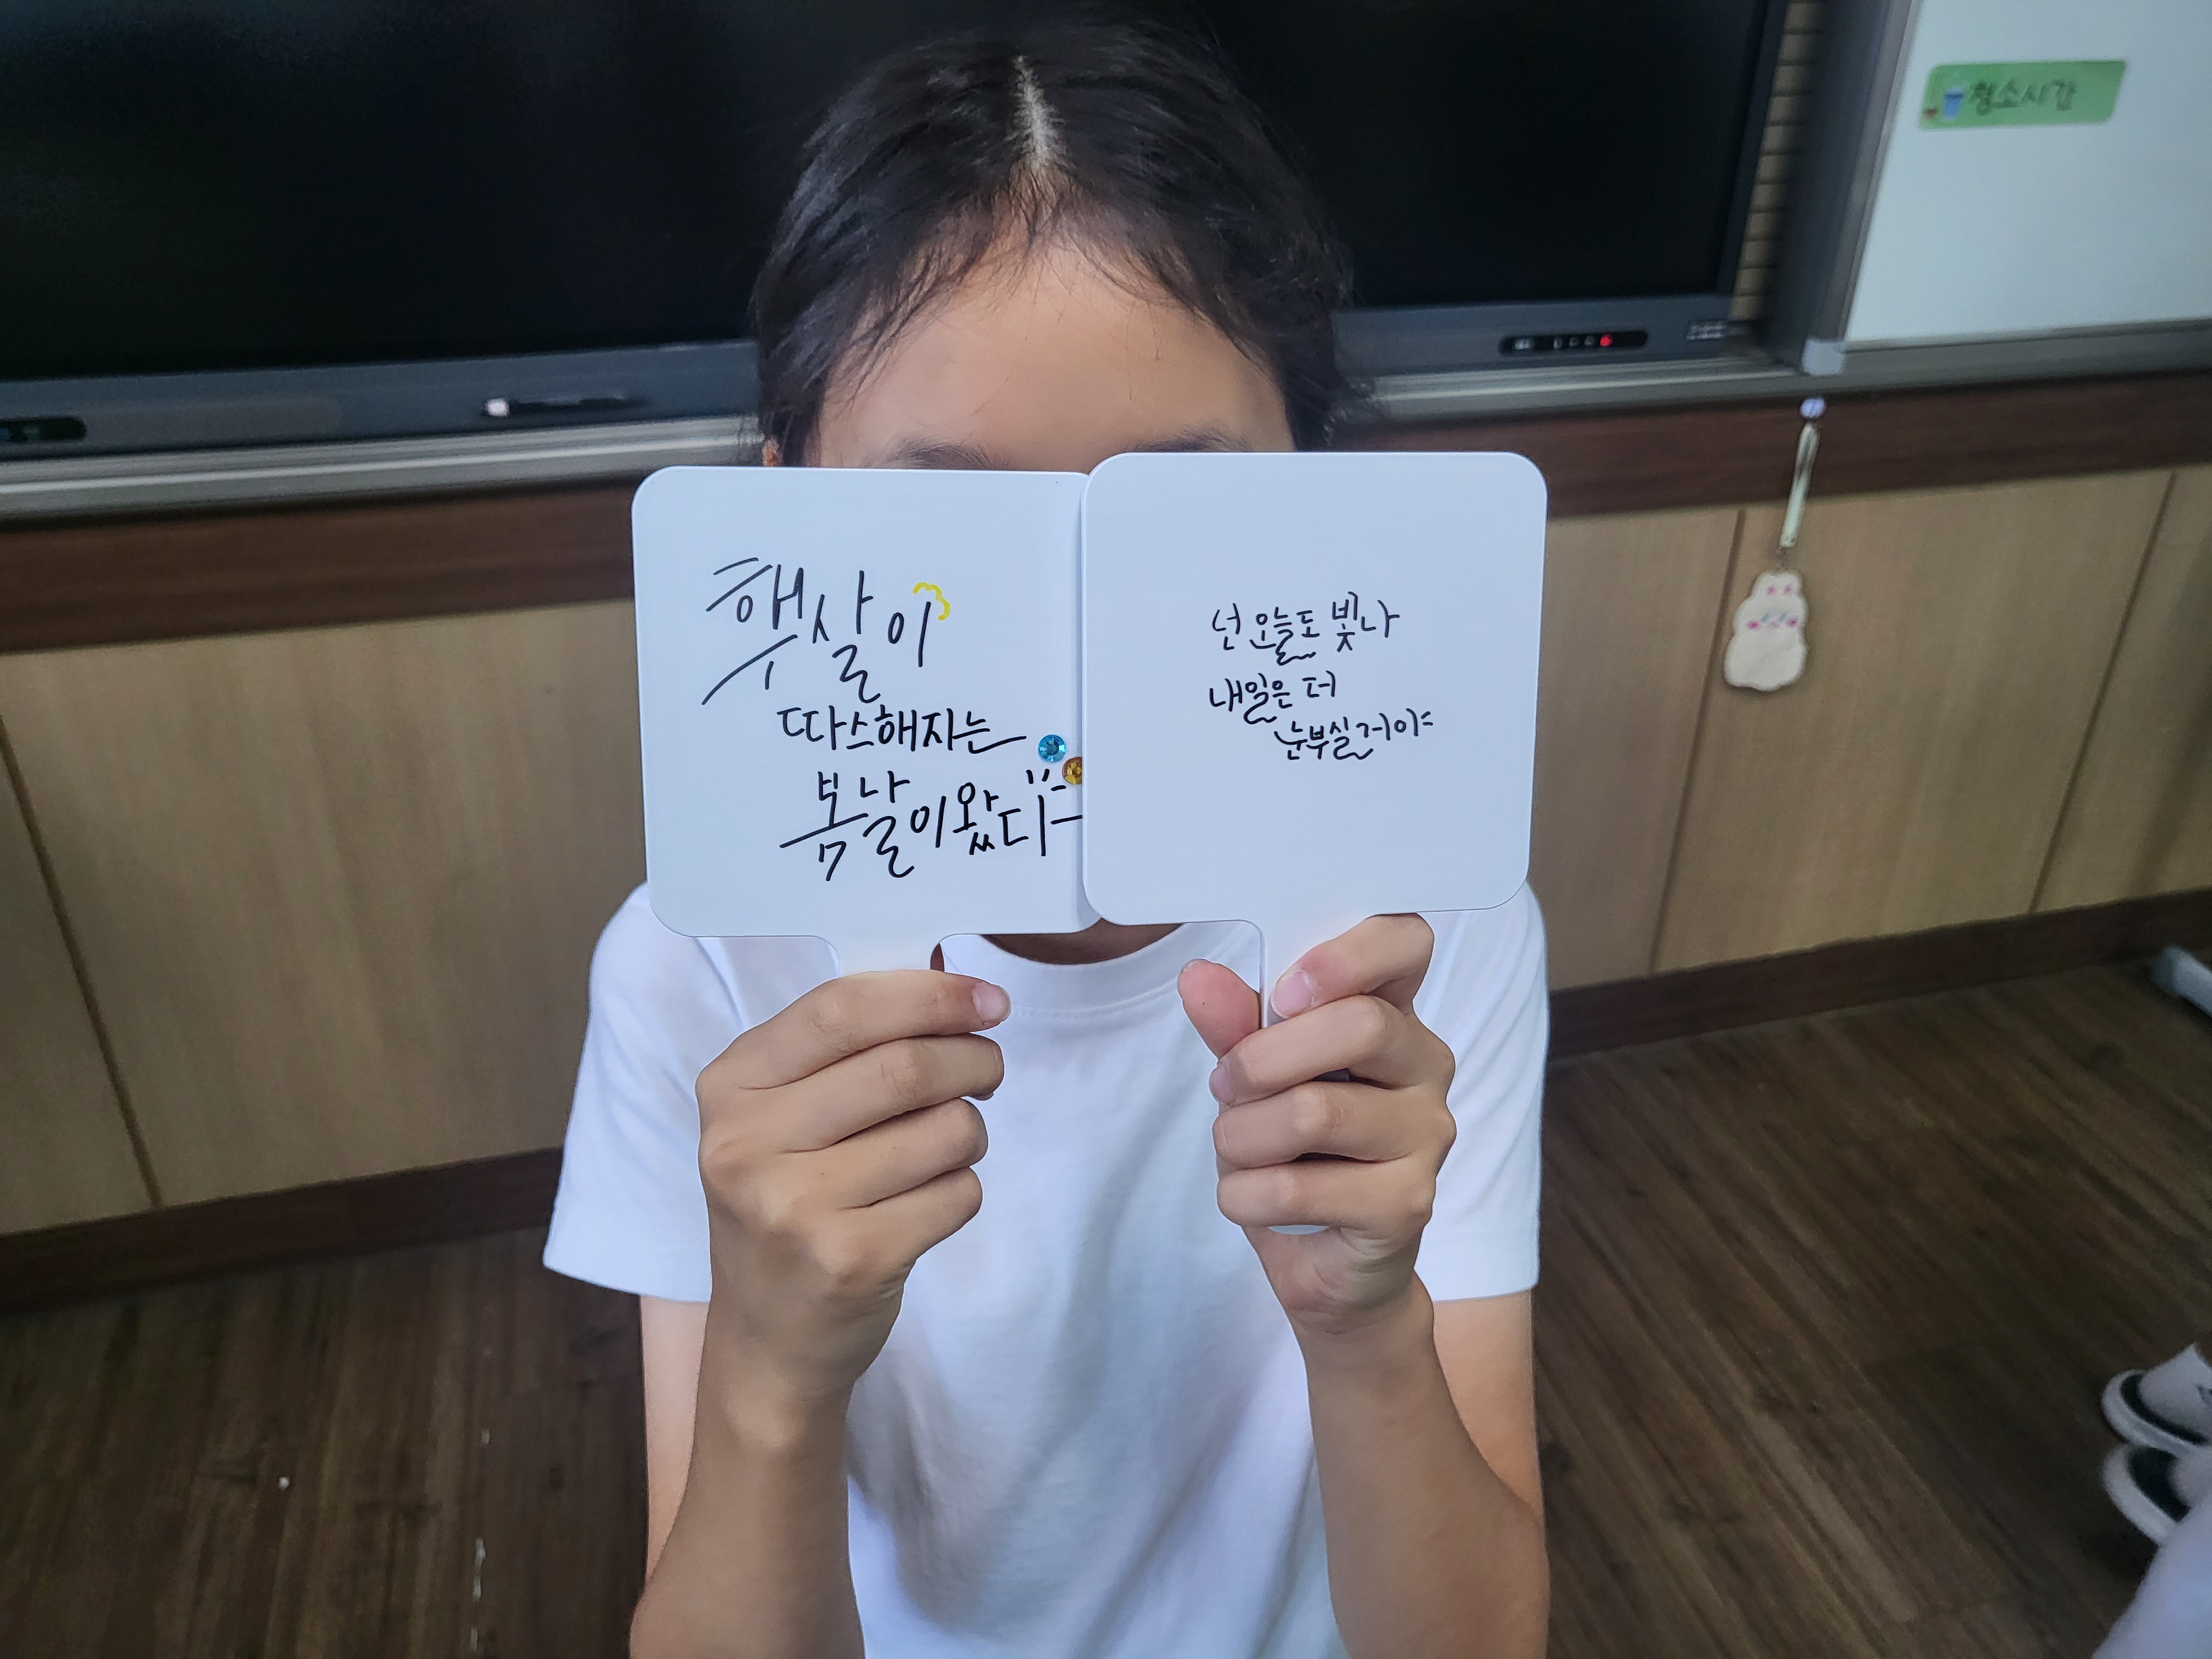 햇살이
따스해지는
봄날이 왔다
넌 오늘도 빛나
내일은 더
눈부실거야
청소시간